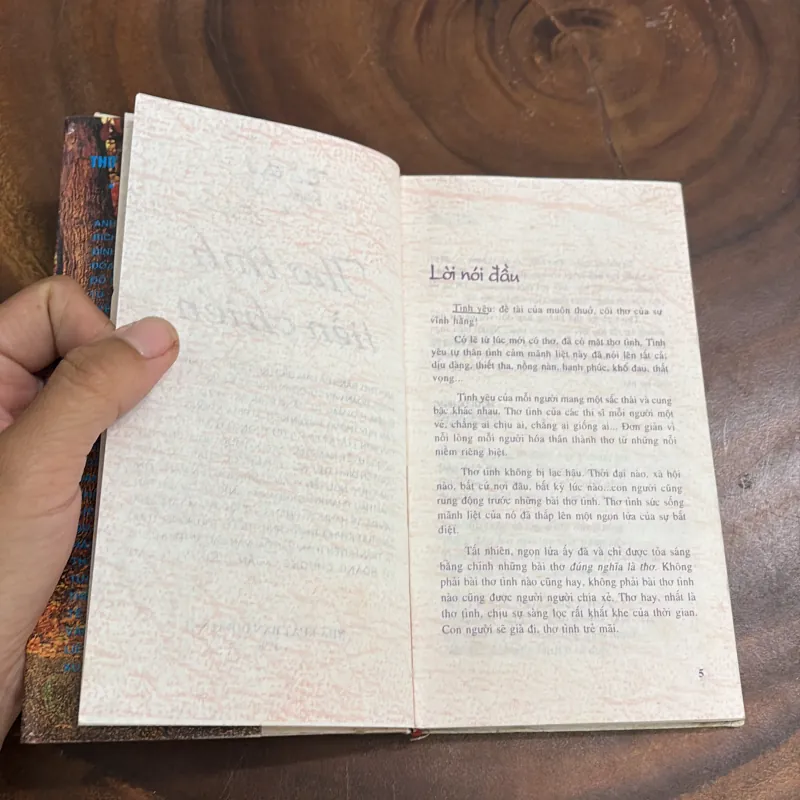 Lời nói đầu
Tình yêu: đề tài của muôn thuở, cõi thơ của sự
vĩnh hằng!
Có lẽ từ lúc mới có thơ, đã có mặt thơ tình. Tình
yêu tự thân tình cảm mãnh liệt này đã nói lên tất cả:
dịu dàng, thiết tha, nồng nàn, hạnh phúc, khổ đau, thất
vọng...
Tình yêu của mỗi người mang một sắc thái và cung
bậc khác nhau. Thơ tình của các thi sĩ mỗi người một
vẻ, chẳng ai chịu ai, chẳng ai giống ai... Đơn giản vì
nỗi lòng mỗi người hóa thân thành thơ từ những nỗi
niềm riêng biệt.
Thơ tình không bị lạc hậu. Thời đại nào, xã hội
nào, bất cứ nơi đâu, bất kỳ lúc nào...con người cũng
rung động trước những bài thơ tình. Thơ tình sức sống
mãnh liệt của nó đã thắp lên một ngọn lửa của sự bất
diệt.
Tất nhiên, ngọn lửa ấy đã và chỉ được tỏa sáng
bằng chính những bài thơ đúng nghĩa là thơ. Không
phải bài thơ tình nào cũng hay, không phải bài thơ tình
nào cũng được người người chia xẻ. Thơ hay, nhất là
thơ tình, chịu sự sàng lọc rất khắt khe của thời gian.
Con người sẽ già đi, thơ tình trẻ mãi.
5